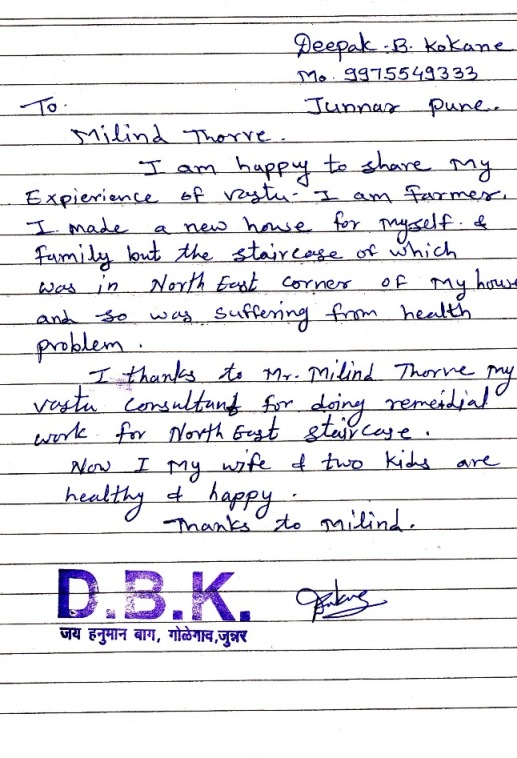 Deepak .B. Kokane
Mo. 9975549333
To.
Junnar Pune.
Milind Thorve.
I am happy to share My
Expierience of vastu- I am Farmer.
I made a new house for myself. &
family but the staircase of which
was in North East corner of My hous
and so was suffering from health
problem.
I thanks to Mr. Milind Thorve My
vastu consultant for doing remeidial
work for North East staircase.
Now I My wife & two kids are
healthy & happy.
Thanks to Milind.
D.B.K.
जय हनुमान बाग, गोळेगाव,जुन्नर